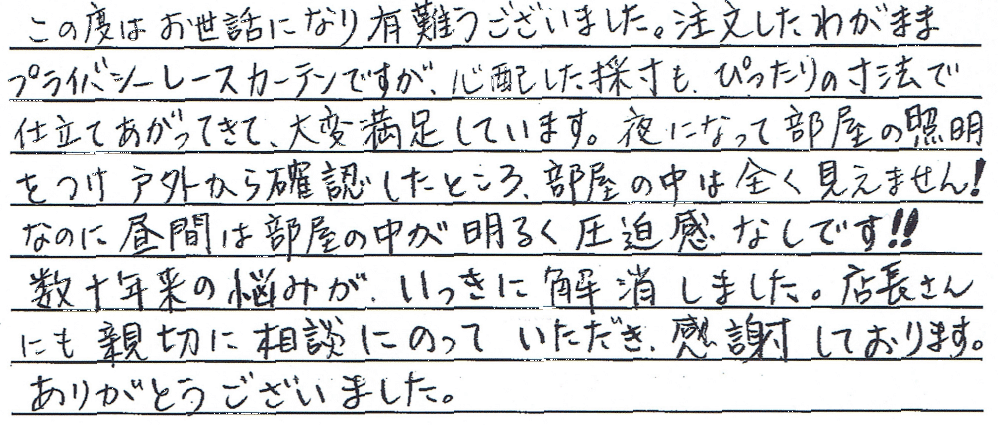 この度はお世話になり有難うございました。注文したわがまま
プライバシーレースカーテンですが、心配した採寸も、ぴったりの寸法で
仕立てあがってきて、大変満足しています。夜になって部屋の照明
をつけ戸外から確認したところ、部屋の中は全く見えません!
なのに昼間は部屋の中が明るく圧迫感なしです!!
数十年来の悩みが、いっきに解消しました。店長さん
にも親切に相談にのっていただき、感謝しております。
ありがとうございました。